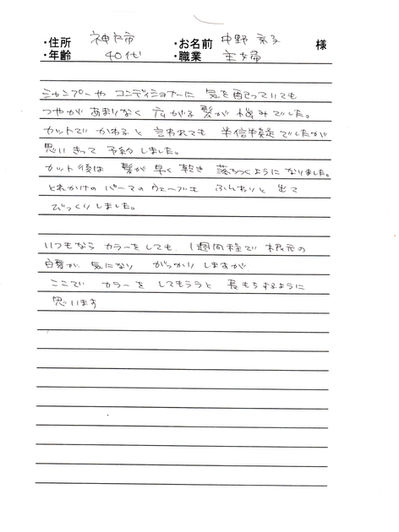 ・住所 神戸市 ・お名前 中野 京子 様
・年齢 40代 ・職業 主婦
シャンプーや コンディショナーに 気を配っていても
つやが あまりなく 広がる 髪が 悩みでした。
カットで かわると 言われても 半信半疑でしたが
思いきって 予約しました。
カット後は 髪が 早く 乾き 落ちつくように なりました。
とれかけの パーマのウェーブも ふんわりと 出て
びっくりしました。
いつもなら カラーをしても 1週間程で 根元の
白髪が 気になり がっかりしますが
ここで カラーを してもらうと 長もちするように
思います